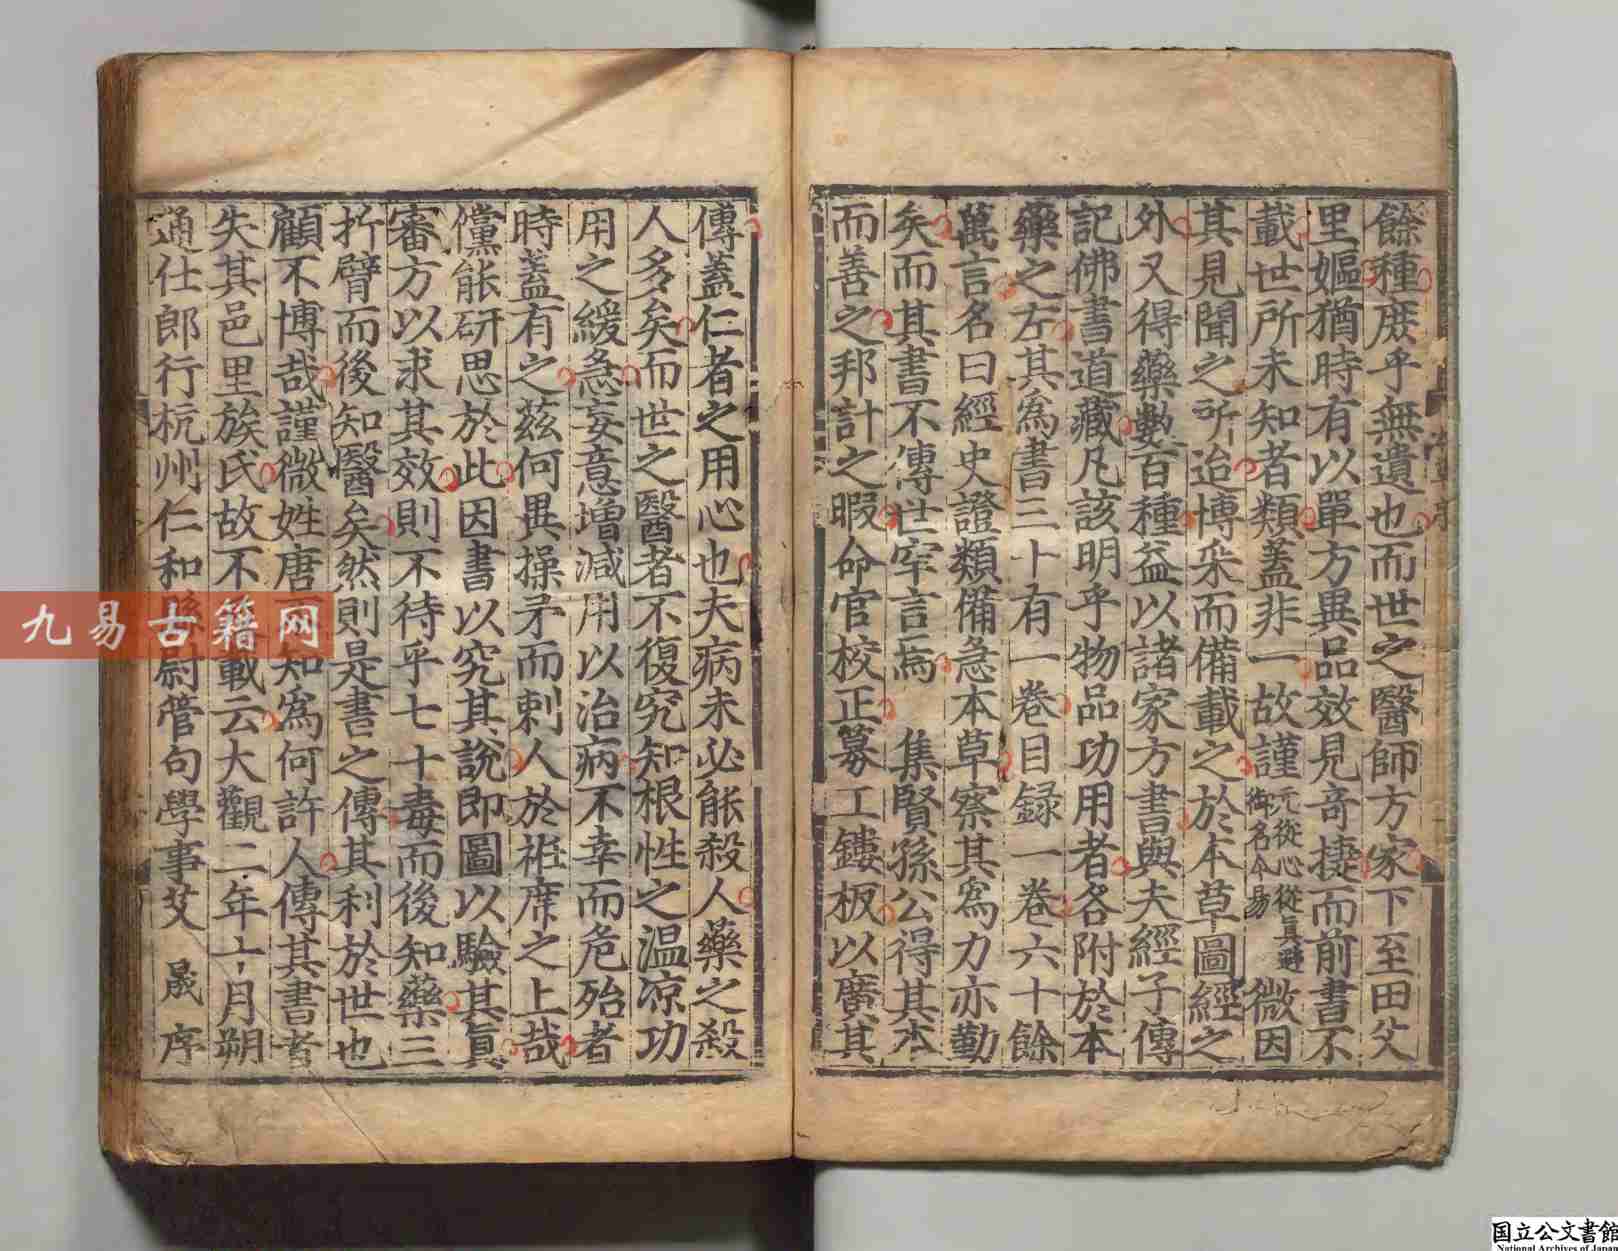 餘種庶乎無遺也而世之醫師方家下至田父
里嫗猶時有以單方異品效見奇捷而前書不
載世所未知者類蓋非一故謹元從心從真避御名今易微因
其見聞之所迨博采而備載之於本草圖經之
外又得藥數百種益以諸家方書與夫經子傳
記佛書道藏凡該明乎物品功用者各附於本
藥之左其爲書三十有一卷目録一卷六十餘
萬言名曰經史證類備急本草察其爲力亦勤
矣而其書不傳世罕言焉 集賢孫公得其本
而善之邦計之暇命官校正募工鏤板以廣其
傳蓋仁者之用心也夫病未必能殺人藥之殺
人多矣而世之醫者不復究知根性之温凉功
用之緩急妄意增減用以治病不幸而危殆者
時蓋有之茲何異操矛而刺人於袵席之上哉
儻能研思於此因書以究其說即圖以驗其眞
審方以求其效則不待乎七十毒而後知藥三
折臂而後知醫矣然則是書之傳其利於世也
顧不博哉謹微姓唐 知爲何許人傳其書者
失其邑里族氏故不 載云大觀二年十月朔
通仕郎行杭州仁和縣尉管句學事艾 晟 序
九易古籍网
国立公文書館
National Archives of Japan